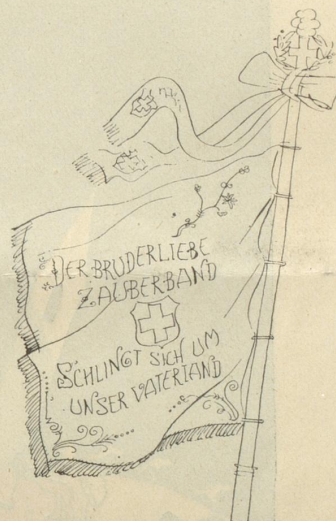 DER BRUDERLIEBE
ZAUBERBAND
SCHLINGT SICH UM
UNSER VATERLAND